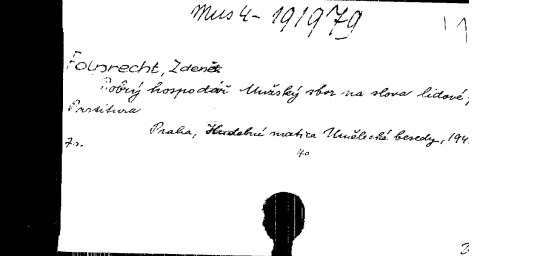 Mus 4 - 19/979
Folprecht, Zdeněk
Dobrý hospodář Mužský sbor na slova lidové;
Partitura
Praha, Hudební matice Umělecké besedy, 194
7 s.
4o